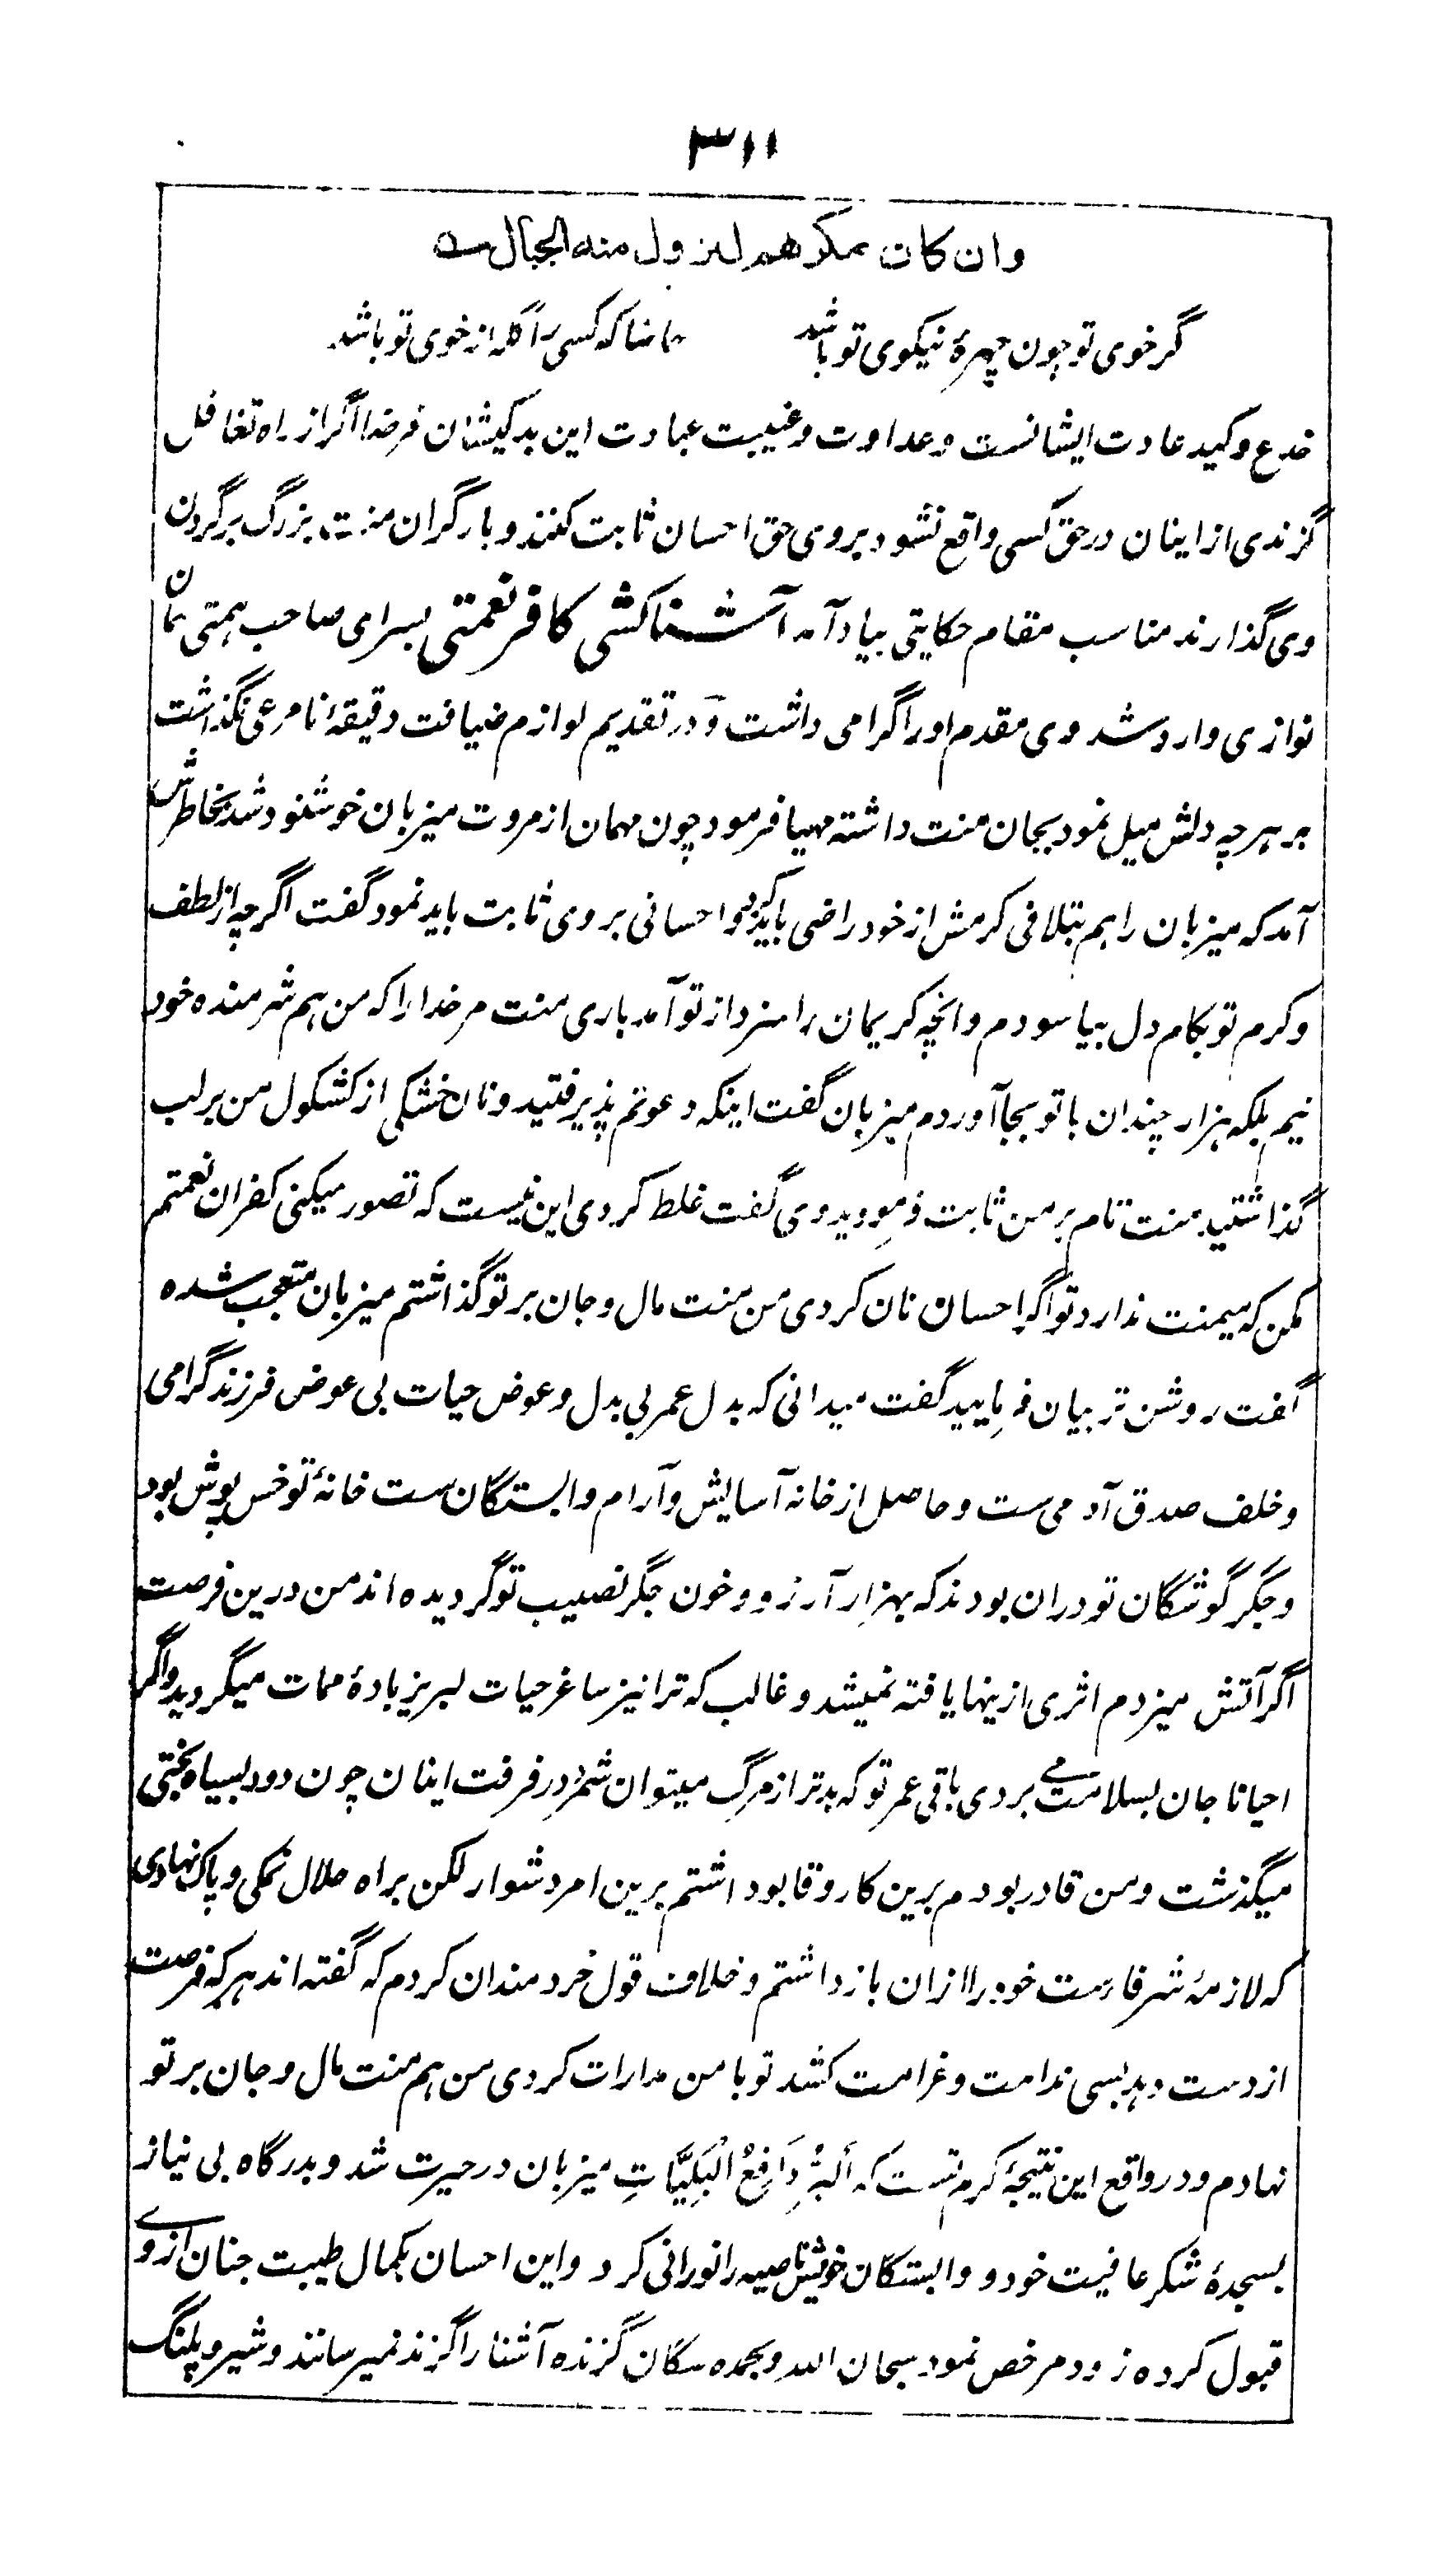 ٣١١
وان كان مكرهم لتزول منه الجبال ه
گر خوی تو چون چهرۀ نیکوی تو باشد حاشا که کسی را گله از خوی تو باشد
خدع و کید عادت ایشانست و عداوت و غیبت عبادت این بدکیشان فرضا اگر از راه تغافل
گزندی از اینان در حق کسی واقع نشود بروی حق احسان ثابت کنند و بار گران منت بزرگ بر گردن
وی گذارند مناسب مقام حکایتی بیاد آمد آشنا کشی کافر نعمتی بسرای صاحب همتی مهمان
نوازی وارد شد وی مقدم او را گرامی داشت و در تقدیم لوازم ضیافت دقیقۀ نامرعی نگذاشت
بر هرچه دلش میل نمود بجان منت داشته مهیا فرمود چون مهمان از مروت میزبان خوشنود شد بخاطرش
آمد که میزبان را هم بتلافی کرمش از خود راضی باید کرد و احسانی بروی ثابت باید نمود گفت اگرچه از لطف
و کرم تو بکام دل بیاسودم و انچه کریمان را سزد از تو آمد باری منت مر خدا را که من هم شرمنده خود
نیم بلکه هزار چندان با تو بجا آوردم میزبان گفت اینکه دعوتم پذیرفتید و نان خشکی از کشکول من بر لب
گذاشتید منت تام بر من ثابت فرمودید وی گفت غلط کردی این نیست که تصور میکنی کفران نعمتم
مکن که میمنت ندارد تو اگر احسان نان کردی من منت مال و جان بر تو گذاشتم میزبان متعجب شده
گفت روشن تر بیان فرمایید گفت میدانی که بدل عمر بی بدل و عوض حیات بی عوض فرزند گرامی
و خلف صدق آدمی ست و حاصل از خانه آسایش و آرام وابستگان ست خانۀ تو خس پوش بود
و جگر گوشگان تو دران بودند که بهزار آرزو و خون جگر نصیب تو گردیده اند من درین فرصت
اگر آتش میزدم اثری از ینها یافته نمیشد و غالب که ترا نیز ساغر حیات لبریز بادۀ ممات میگردید و اگر
احیانا جان بسلامت می بردی باقی عمر تو که بدتر از مرگ میتوان شمرد در فرقت اینان چون دود بسیاه بختی
میگذشت و من قادر بودم برین کار و قابو داشتم برین امر دشوار لکن براه حلال نمکی و پاک نهادی
که لازمۀ شرفا رست خود را ازان باز داشتم و خلاف قول خردمندان کردم که گفته اند هر که فرصت
از دست دهد بسی ندامت و غرامت کشد تو با من مدارات کردی من هم منت مال و جان بر تو
نهادم و در واقع این نتیجۀ کرم تست که اَلبِرُّ دَافِعُ الْبَلِیَّاتِ میزبان در حیرت شد و بدرگاه بی نیاز
بسجدۀ شکر عافیت خود و وابستگان خویش ناصیه را نورانی کرد و این احسان بکمال طیبت جنان ازوے
قبول کرده زود مرخص نمود سبحان الله و بحمده سگان گزنده آشنا را گزند نمیرسانند و شیر و پلنگ